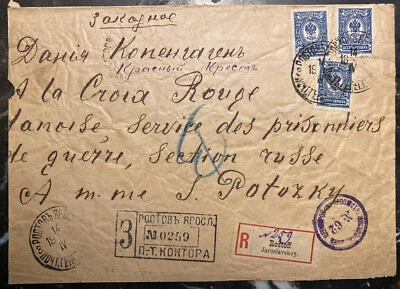 Заказное
Данія Копенгагенъ
Красный Крестъ
A la Croix Rouge
danoise Service des prisonniers
de guerre, Section russe
A m-me S. Potozky
З
РОСТОВЪ ЯРОСЛ.
№ 0259
П.-Т. КОНТОРА
R
№ 259
Rostow
Jaroslavskoy.